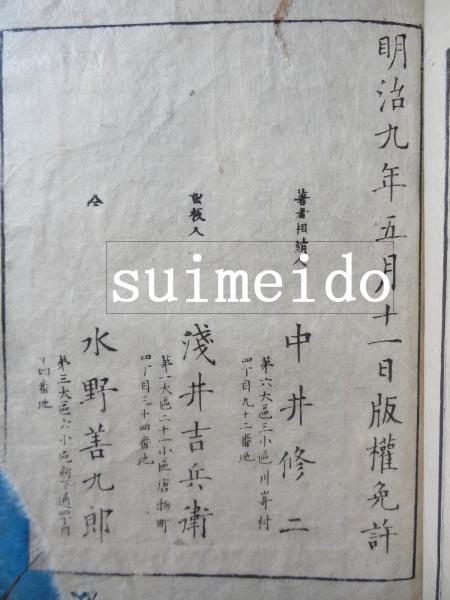 明治九年五月十一日版權免許
著者相續人
中井修二
第六大區三小區川嵜村
四丁目九十二番地
出板人
淺井吉兵衛
第一大區二十一小區唐物町
四丁目三十四番地
仝
水野善九郎
第三大區六小區靭下通四丁目
十四番地
suimeido